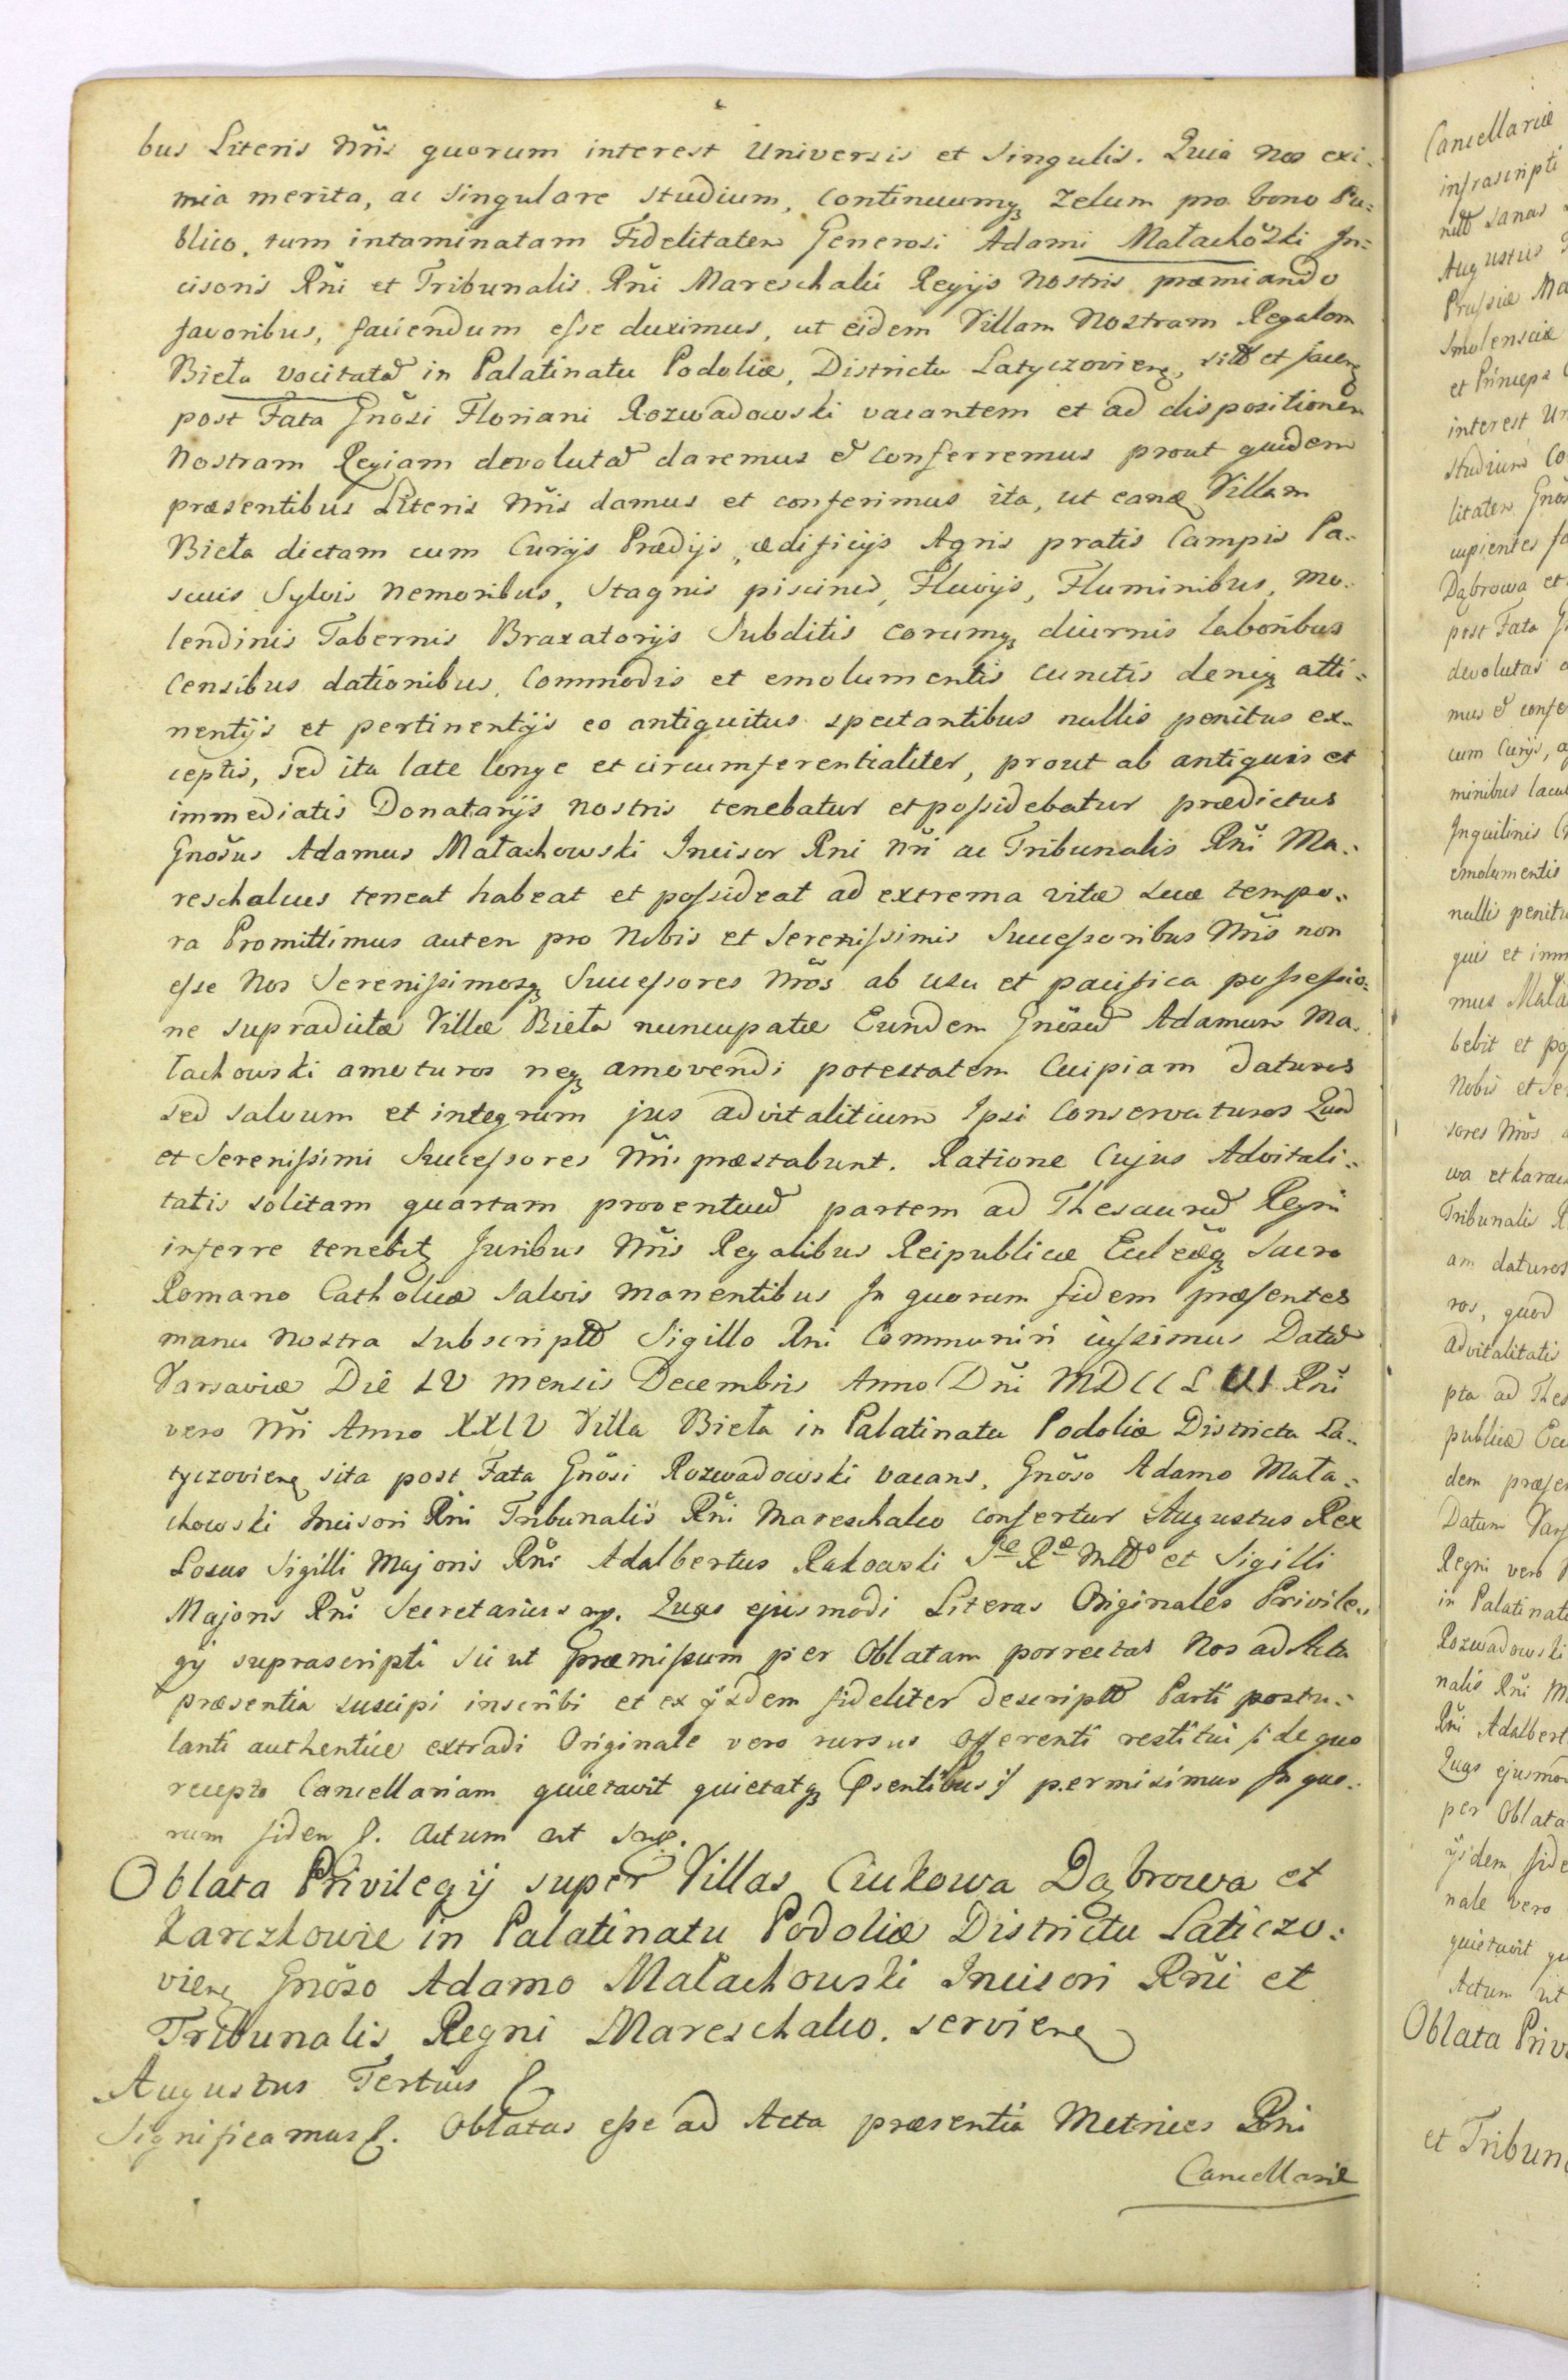 bus Literis Nr̃is quorum interest Universis et Singulis. Quia Nos exi-
mia merita, ac Singulare studium, Continuumqꝫ Zelum pro bono Pu=
blico, tum intaminatam Fidelitatem Generosi Adami Małachow̃ski In=
cisoris Rñi et Tribunalis Rñi Mareschalci Regijs Nostris præmiando
favoribus, faciendum eſse duximus, ut eidem Villam Nostram Regalem
Bieła vocitatã in Palatinatu Podoliæ, Districtu Latyczovieñ, sitã et jaceñ
post Fata Gnõsi Floriani Rozwadowski vacantem et ad dispositionem
Nostram Regiam devolutã daremus & conferremus prout quidem
præsentibus Literis Nr̃is damus et conferimus ita, ut eandẽ Villam
Bieła dictam cum Curijs Prædijs, ædificijs Agris pratis Campis Pa-
scuis Sylvis Nemoribus, Stagnis piscinis, Fluvijs, Fluminibus, Mo-
lendinis Tabernis Braxatorijs Subditis eorumqꝫ diurnis laboribus
Censibus dationibus, Commodis et emolumentis cunctis deniqꝫ atti=
nentijs et pertinentijs eo antiquitus spectantibus nullis penitus ex-
ceptis, sed ita late longe et circumferentialiter, prout ab antiquis et
immediatis Donatarijs Nostris tenebatur et poſsidebatur prædictus
Gnõsus Adamus Małachowski Incisor Rni Nr̃i ac Tribunalis Rñi Ma-
reschalcus teneat habeat et poſsideat ad extrema vitæ suæ tempo-
ra Promittimus autem pro Nobis et Sereniſsimis Succeſsoribus Nr̃is non
eſse Nos Sereniſsimosqꝫ Succeſsores Nr̃os ab usu et pacifica poſseſsio-
ne supradictæ Villæ Bieła nuncupatæ Eundem Gnõsũ Adamum Ma-
łachowski amoturos neqꝫ amovendi potestatem Cuipiam daturos
sed salvum et integrum jus advitalitium Ipsi Conservaturos Quod
et Sereniſsimi Succeſsores Nr̃i præstabunt. Ratione Cujus Advitali-
tatis solitam quartam proventuũ partem ad Thesaurũ Regni
inferre tenebitꝫ Juribus Nr̃is Regalibus Reipublicæ Ecclẽæqꝫ Sacro
Romano Catholicæ salvis manentibus In quorum fidem præsentes
manu Nostra subscriptã Sigillo Rni Communiri iuſsimus Datũ
Varsaviæ Die IV Mensis Decembris Anno Dñi MDCCLVII Rñi
vero Nr̃i Anno XXIV Villa Bieła in Palatinatu Podoliæ Districtu La-
tyczovieñ sita post Fata Gnõsi Rozwadowski vacans, Gnõso Adamo Mała-
chowski Incisori Rñi Tribunalis Rñi Mareschalco confertur Augustus Rex
Locus Sigilli Majoris Rñi Adalbertus Rakowski et Sigilli
Majoris Rñi Secretarius mp. Quas ejusmodi Literas Originales Privile-
gij suprascripti sic ut præmiſsum per Oblatam porrectas Nos ad Acta
præsentia suscipi inscribi et ex ijsdem fideliter descriptã Parti postu-
lanti authentice extradi Originale vero rursus offerenti restitui /: de quo
recepto Cancellariam quietavit quietatqꝫ p̃sentibus :/ permisimus In quo-
rum fidem &. Actum ut sup.
Oblata Privilegij super Villas Ciukowa Dąbrowa et
Karczkowie in Palatinatu Podoliæ Districtu Laticzo-
vieñ Gnõso Adamo Małachowski Incisori Rñi et
Tribunalis Regni Mareschalco. Servieñ
Augustus Tertius &
Significamus &. Oblatas eſse ad Acta præsentia Metrices Rni
Cancellariæ
Cancellariæ
infrascripti
sanas
Augustus
Pruſsiæ Ma
Smolensciæ
et Princeps
interest Un
studium Co
litatem Gnõs
cupientes fa
Dąbrowa et
post Fata G
devolutas a
mus & confe
cum Curijs, a
minibus lacu
Inquilinis C
emolumentis
nullis penitu
quis et imm
mus Mała
bebit et po
Nobis et Se
sores Nr̃os
wa et Karcz
Tribunalis R
am daturos
ros, quod
advitalitatis
pta ad Thes
publicæ Ecc
dem præsen
Datum Vars
Regni vero N
in Palatinatu
Rozwadowski
nalis Rñi M
Rñi Adalbert
Quas ejusmod
per Oblata
ijsdem fide
nale vero
quietavit qu
Actum ut
Oblata Privi
et Tribuna